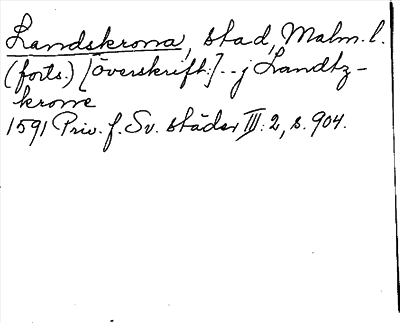 Landskrona, stad, Malm. l.
(forts.) [Överskrift:] -- j Landtz-
krone
1591 Priv. f. Sv. städer III: 2, s. 904.